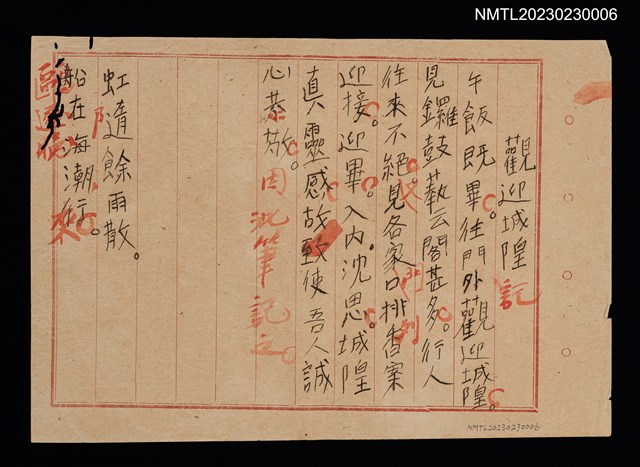 NMTL20230230006
觀迎城隍記
午飯既畢。往門外觀迎城隍。
見鑼鼓藝云閣甚多。行人
往來不絕。見各家口排香案
迎接。迎畢。入內。沈思。城隍
真靈感故致使吾人誠
心恭敬。因沈筆記之。
虹隨餘雨散。
船在海潮行。來
NMTL20230230006